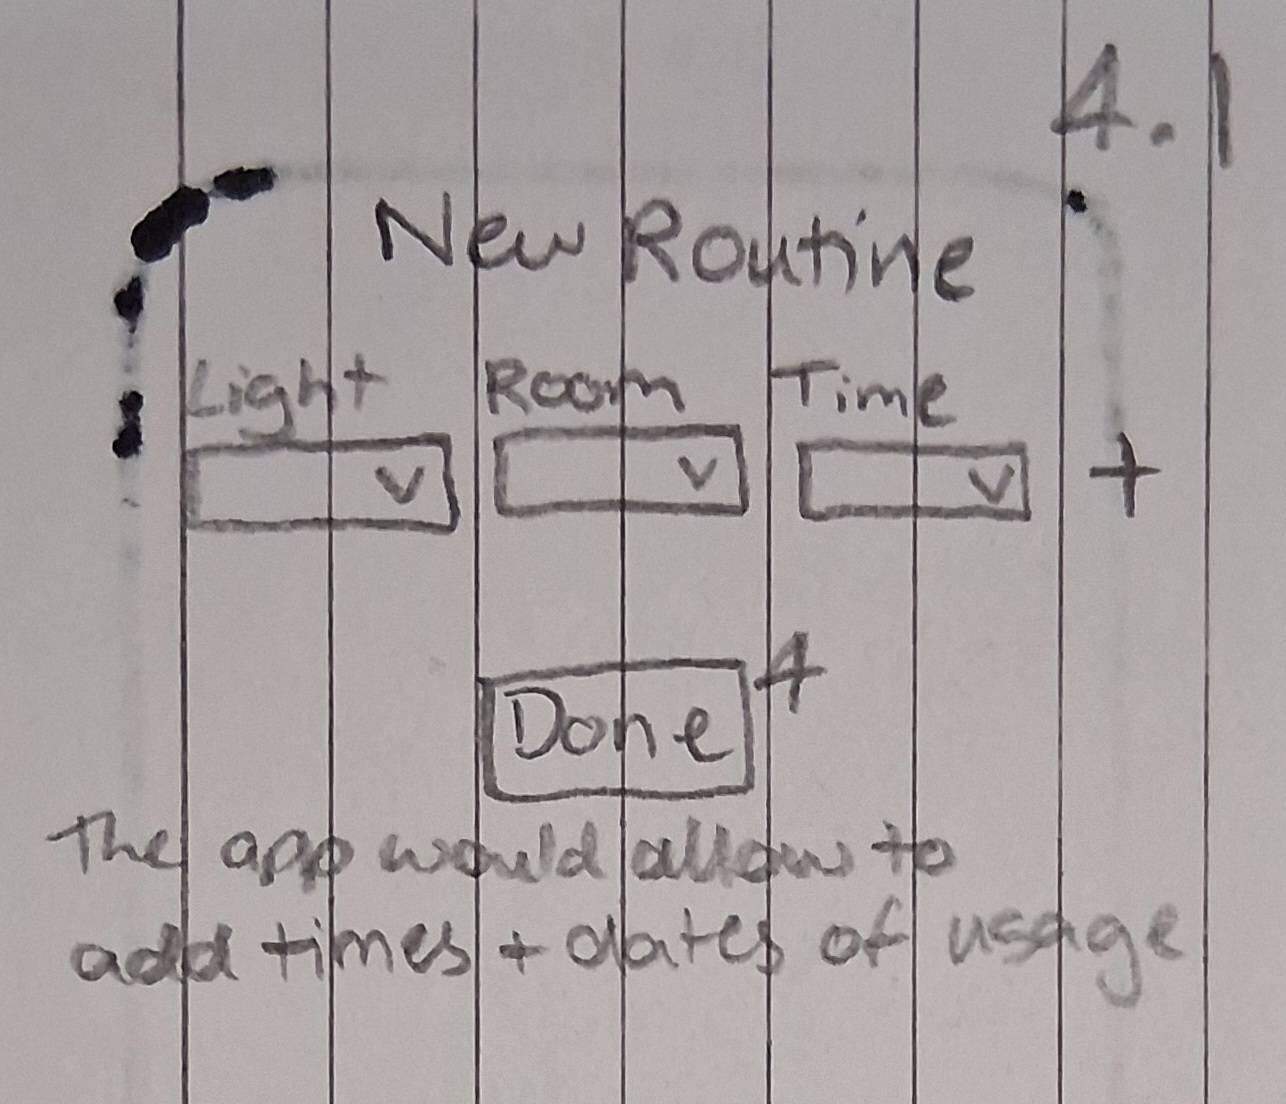 4.1
New Routine
Light Room Time
v v v +
Done 4
The app would allow to
add times + dates of usage